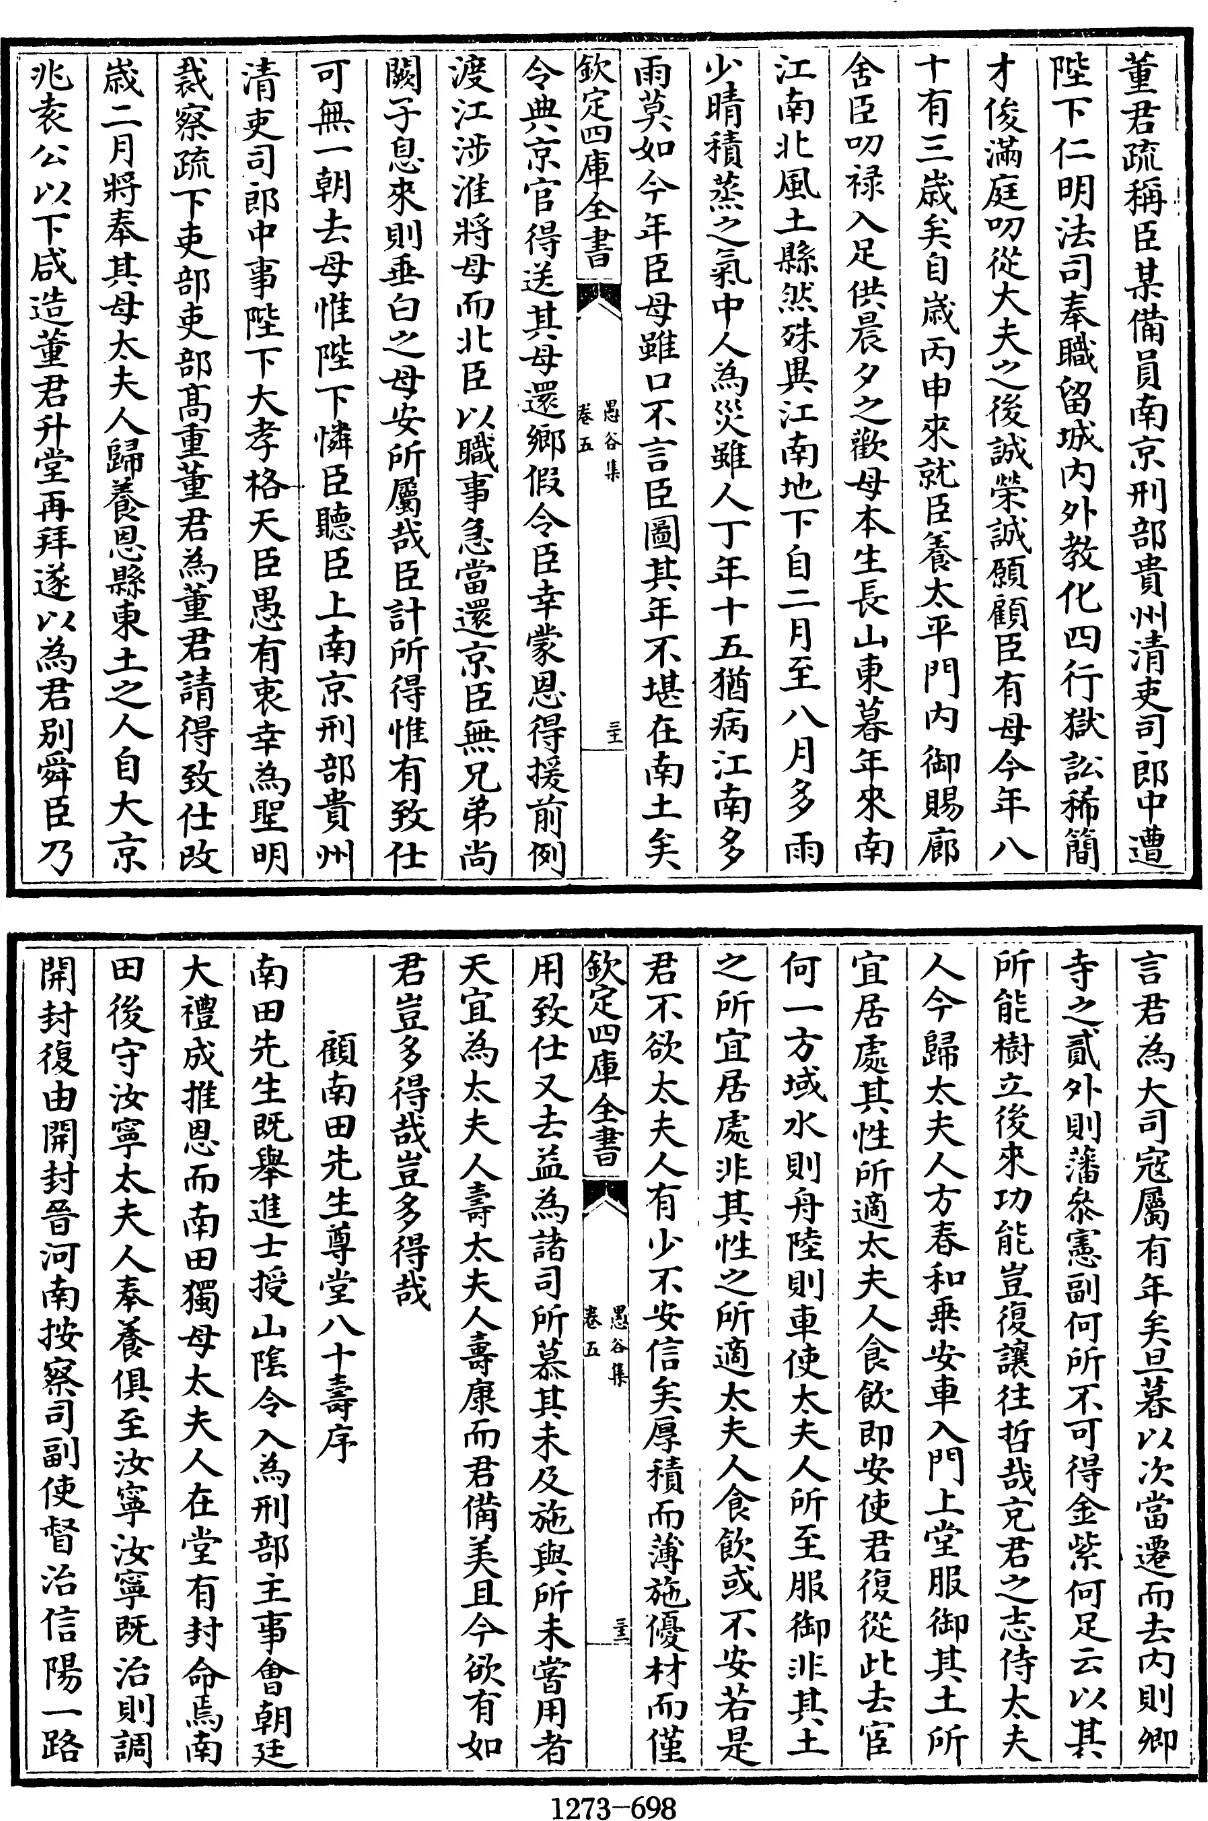 董君疏稱臣某備員南京刑部貴州清吏司郎中遭
陛下仁明法司奉職留城内外教化四行獄訟稀簡
才俊滿庭叨從大夫之後誠榮誠願顧臣有母今年八
十有三歲矣自歲丙申來就臣養太平門内御賜廊
舍臣叨禄入足供晨夕之歡母本生長山東暮年來南
江南北風土縣然殊異江南地下自二月至八月多雨
少晴積蒸之氣中人為災雖人丁年十五猶病江南多
雨莫如今年臣母雖口不言臣圖其年不堪在南土矣
欽定四庫全書
愚谷集
卷五
令典京官得送其母還鄉假令臣幸蒙恩得援前例
渡江涉淮將母而北臣以職事急當還京臣無兄弟尚
闕子息來則垂白之母安所屬哉臣計所得惟有致仕
可無一朝去母惟陛下憐臣聽臣上南京刑部貴州
清吏司郎中事陛下大孝格天臣愚有衷幸為聖明
裁察疏下吏部吏部髙重董君為董君請得致仕改
歲二月將奉其母太夫人歸養恩縣東土之人自大京
兆袁公以下咸造董君升堂再拜遂以為君别舜臣乃
言君為大司宼屬有年矣旦暮以次當遷而去内則卿
寺之貳外則藩叅憲副何所不可得金紫何足云以其
所能樹立後來功能豈復讓往哲哉克君之志侍太夫
人今歸太夫人方春和乗安車入門上堂服御其土所
宜居處其性所適太夫人食飲即安使君復從此去宦
何一方域水則舟陸則車使太夫人所至服御非其土
之所宜居處非其性之所適太夫人食飲或不安若是
君不欲太夫人有少不安信矣厚積而薄施優材而僅
欽定四庫全書
愚谷集
卷五
用致仕又去益為諸司所慕其未及施與所未嘗用者
天宜為太夫人壽太夫人壽康而君備美且今欲有如
君豈多得哉豈多得哉
顧南田先生尊堂八十壽序
南田先生既舉進士授山陰令入為刑部主事會朝廷
大禮成推恩而南田獨母太夫人在堂有封命焉南
田後守汝寧太夫人奉養俱至汝寧汝寧既治則調
開封復由開封晉河南按察司副使督治信陽一路
1273-698